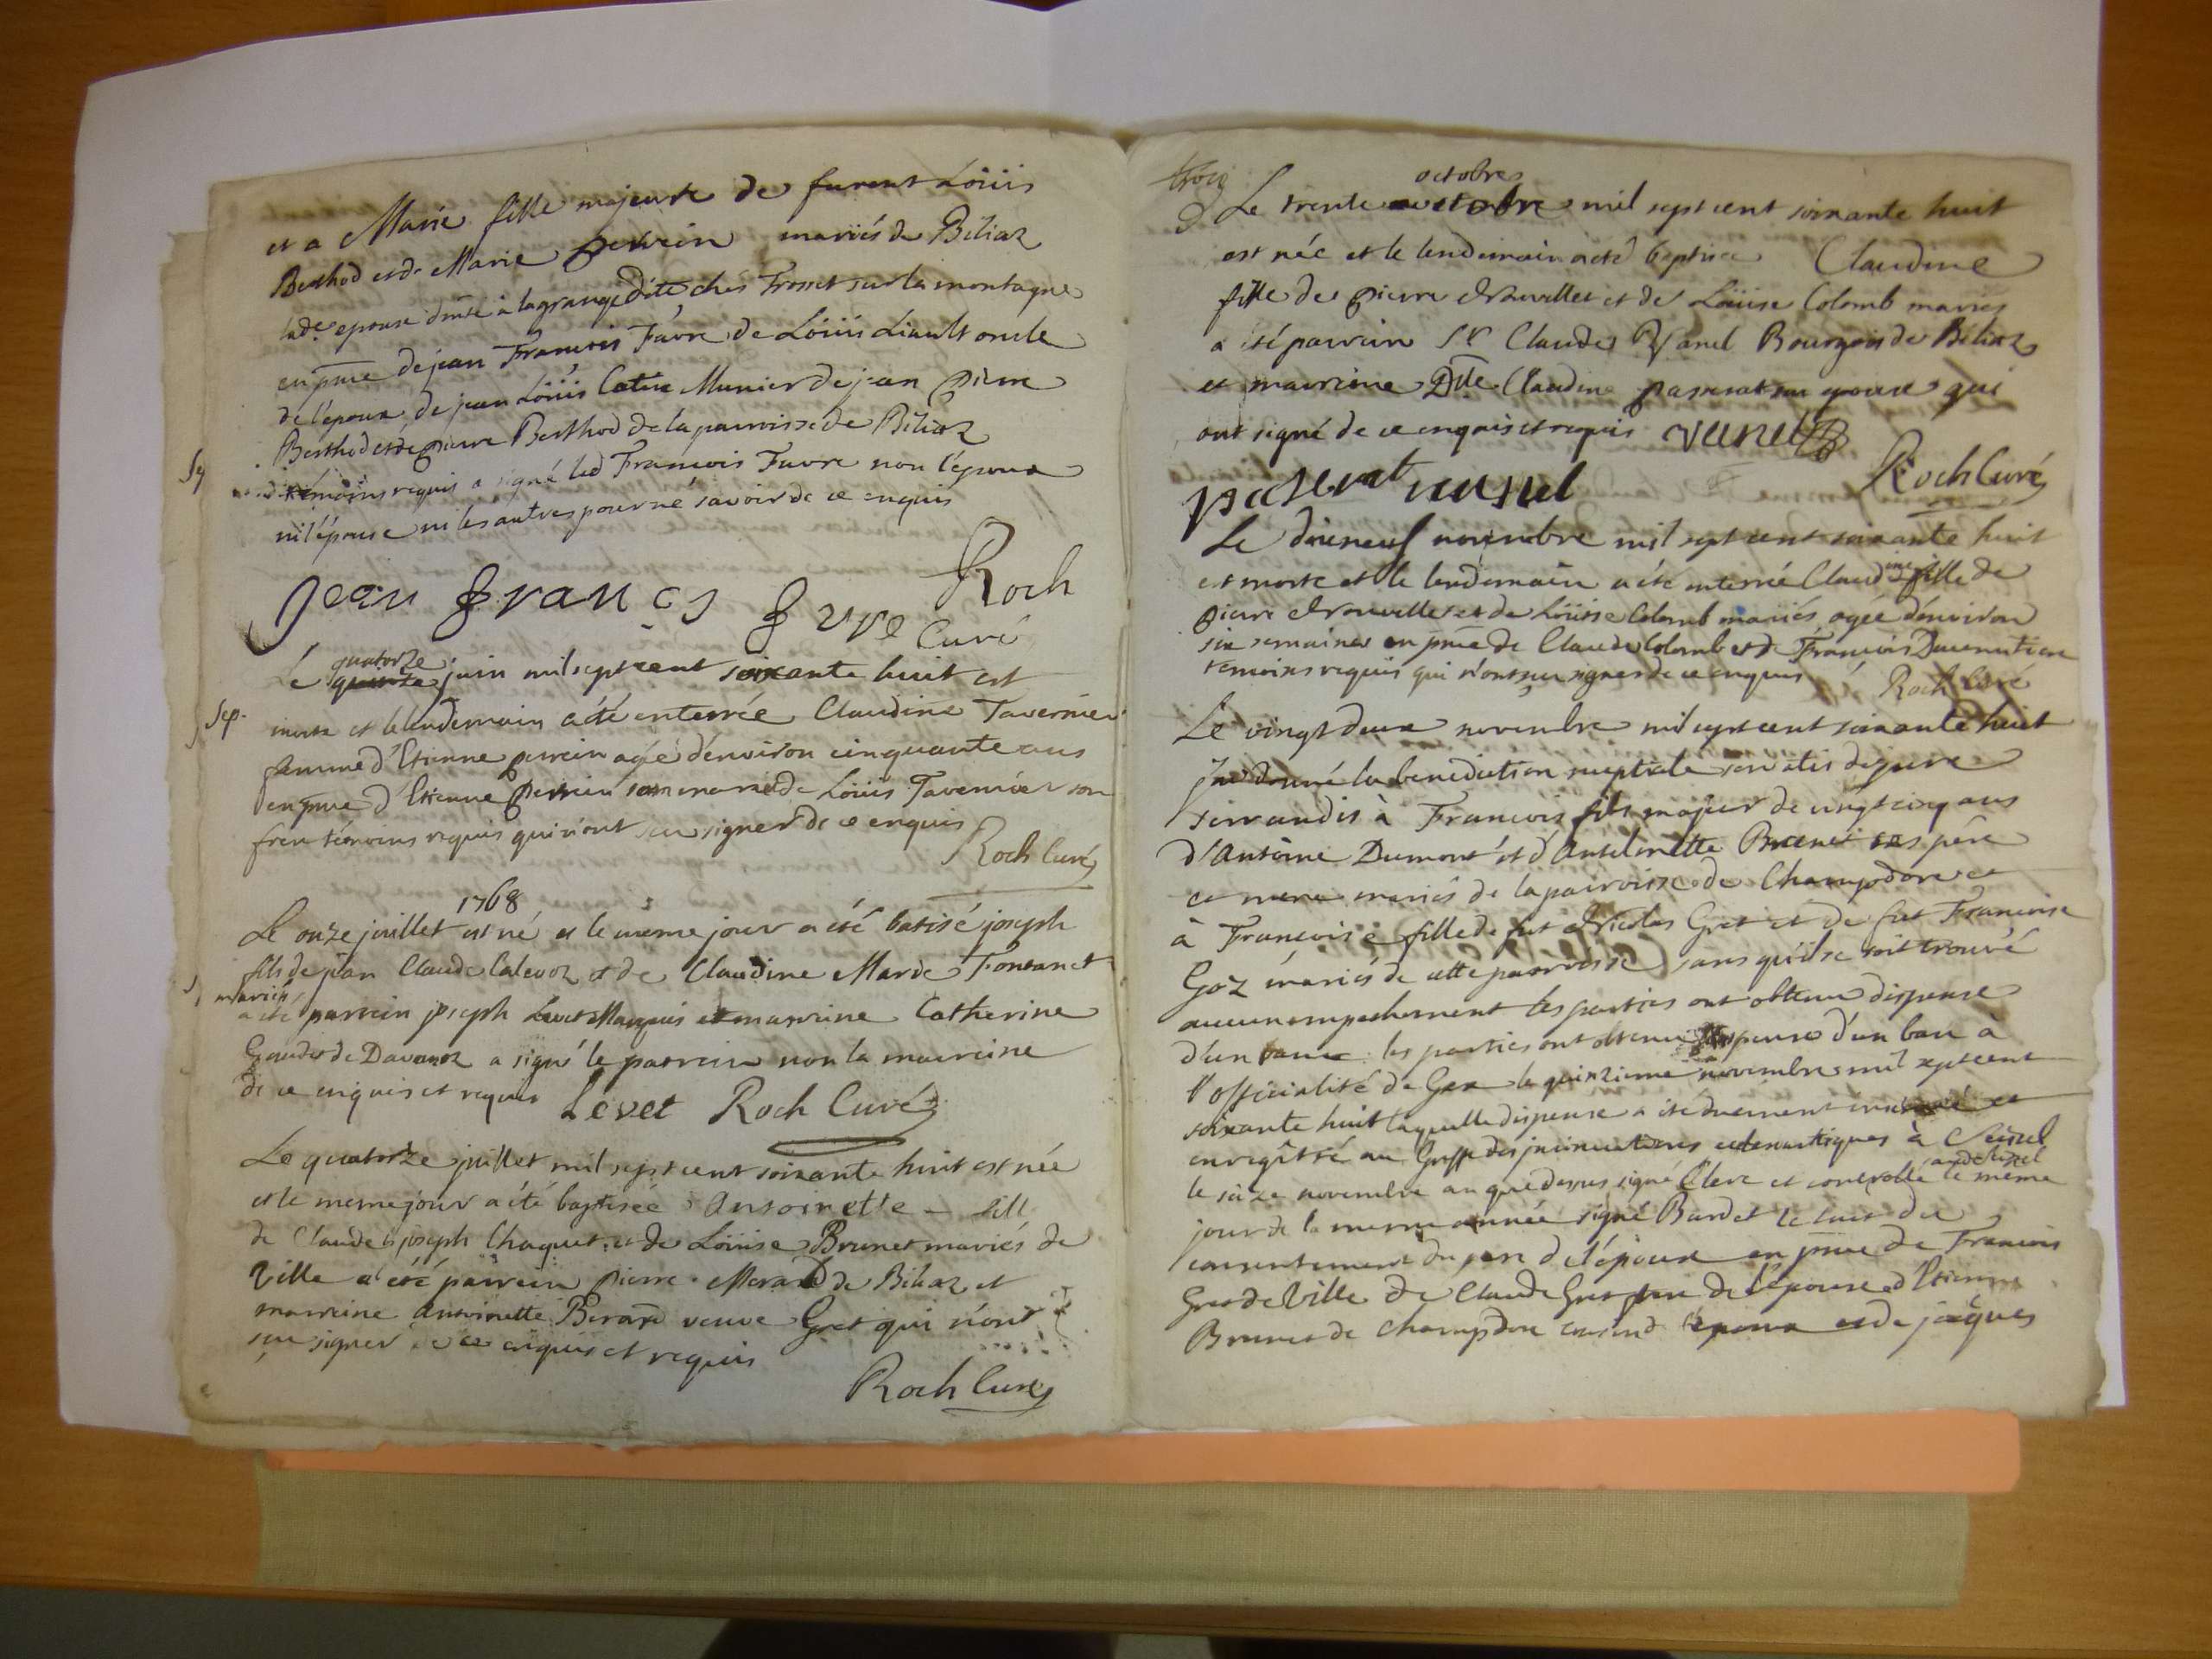 et a Marie fille majeure de furent Loüis
Berthod et de Marie perrein mariés de Béliaz
lad.e epouse dmte à la grange dite chés Frosset sur la montagne
en pnce de jean François Favre de Loüis Liault oncle
de l'epoux de jean Loüis Munier de jean pierre
Berthod et de pierre Berthod de la paroisse de Béliaz
témoins requis a signé led François Favre non l'epoux
ni l'épouse ni les autres pour ne savoir de ce enquis
jean françs favre Roch
Curé
quatorze
Le quinze juin mil sept cent soixante huit est
Sep.
morte et le lendemain a été enterrée Claudine Tavernier
femme d'Etienne perrein agée d'environ cinquante ans
en pnce d'Etienne perrein son marié de Loüis Tavernier son
frere témoins requis qui n'ont su signer de ce enquis
Roch Curé
1768
Le onze juillet est né et le même jour a été batisé joseph
fils de jean Claude Calevoz et de Claudine Marie Fontanet
mariés
a été parrein joseph Levet Marquis et marreine Catherine
Goudet de Davanoz a signé le parrein non la marreine
de ce enquis et requis Levet Roch Curé
Le quatorze juillet mil sept cent soixante huit est née
et le meme jour a été baptisée Antoinette fill
de Claude joseph Chaquet et de Loüise Brunet mariés de
Ville a été parrein pierre Merard de Béliaz et
marreine antoinette Berard veuve Gret qui n'ont
su signer de ce enquis et requis
Roch Curé
trois
octobre
Le trente octobre mil sept cent soixante huit
est née et le lendemain a eté baptisée Claudine
fille de pierre Drouvillet et de Loüise Colomb mariés
a été parrein Sr Claude Vanel Bourgeois de Béliaz
et marreine Dlle Claudine passerat son epouse qui
ont signé de ce enquis et requis vanel
passerat vanel Roch Curé
Le dixneuf novembre mil sept cent soixante huit
est morte et le lendemain a été enterrée Claudine fille de
pierre Drouvillet et de Loüise Colomb mariés agée d'environ
six semaines en pnce de Claude Colomb et de François
temoins requis qui n'ont su signer de ce enquis Roch Curé
Le vingt deux novembre mil sept cent soixante huit
j'ai donné la benediction nuptiale servatis de jure
servandis à François fils majeur de vingt cinq ans
d'Antoine Dumont et d'Anthelmette Brunet ses père
et mere mariés de la paroisse de Champdore et
à Françoise fille de fut Nicolas Gret et de fut Françoise
Goz mariés de cette paroisse sans qu'il se soit trouvé
aucun empechement les parties ont obtenu dispense
d'un banc les parties ont obtenu dispense d'un ban à
l'officialité de Gex le quinzieme novembre mil sept cent
soixante huit laquelle dispense a été duement insinué et
enregîtré au Greffe des insinuations eclesiastiques à Seissel
le seize novembre an que dessus signé Clerc et controllé aud Seissel le même
jour de la meme année signé Bardet le tout du
consentement du pere de l'époux en pnce de François
Gret de Ville de Claude Gret frere de l'epouse d'Etienne
Brunet de Champdore cousin de l'epoux et de jacques